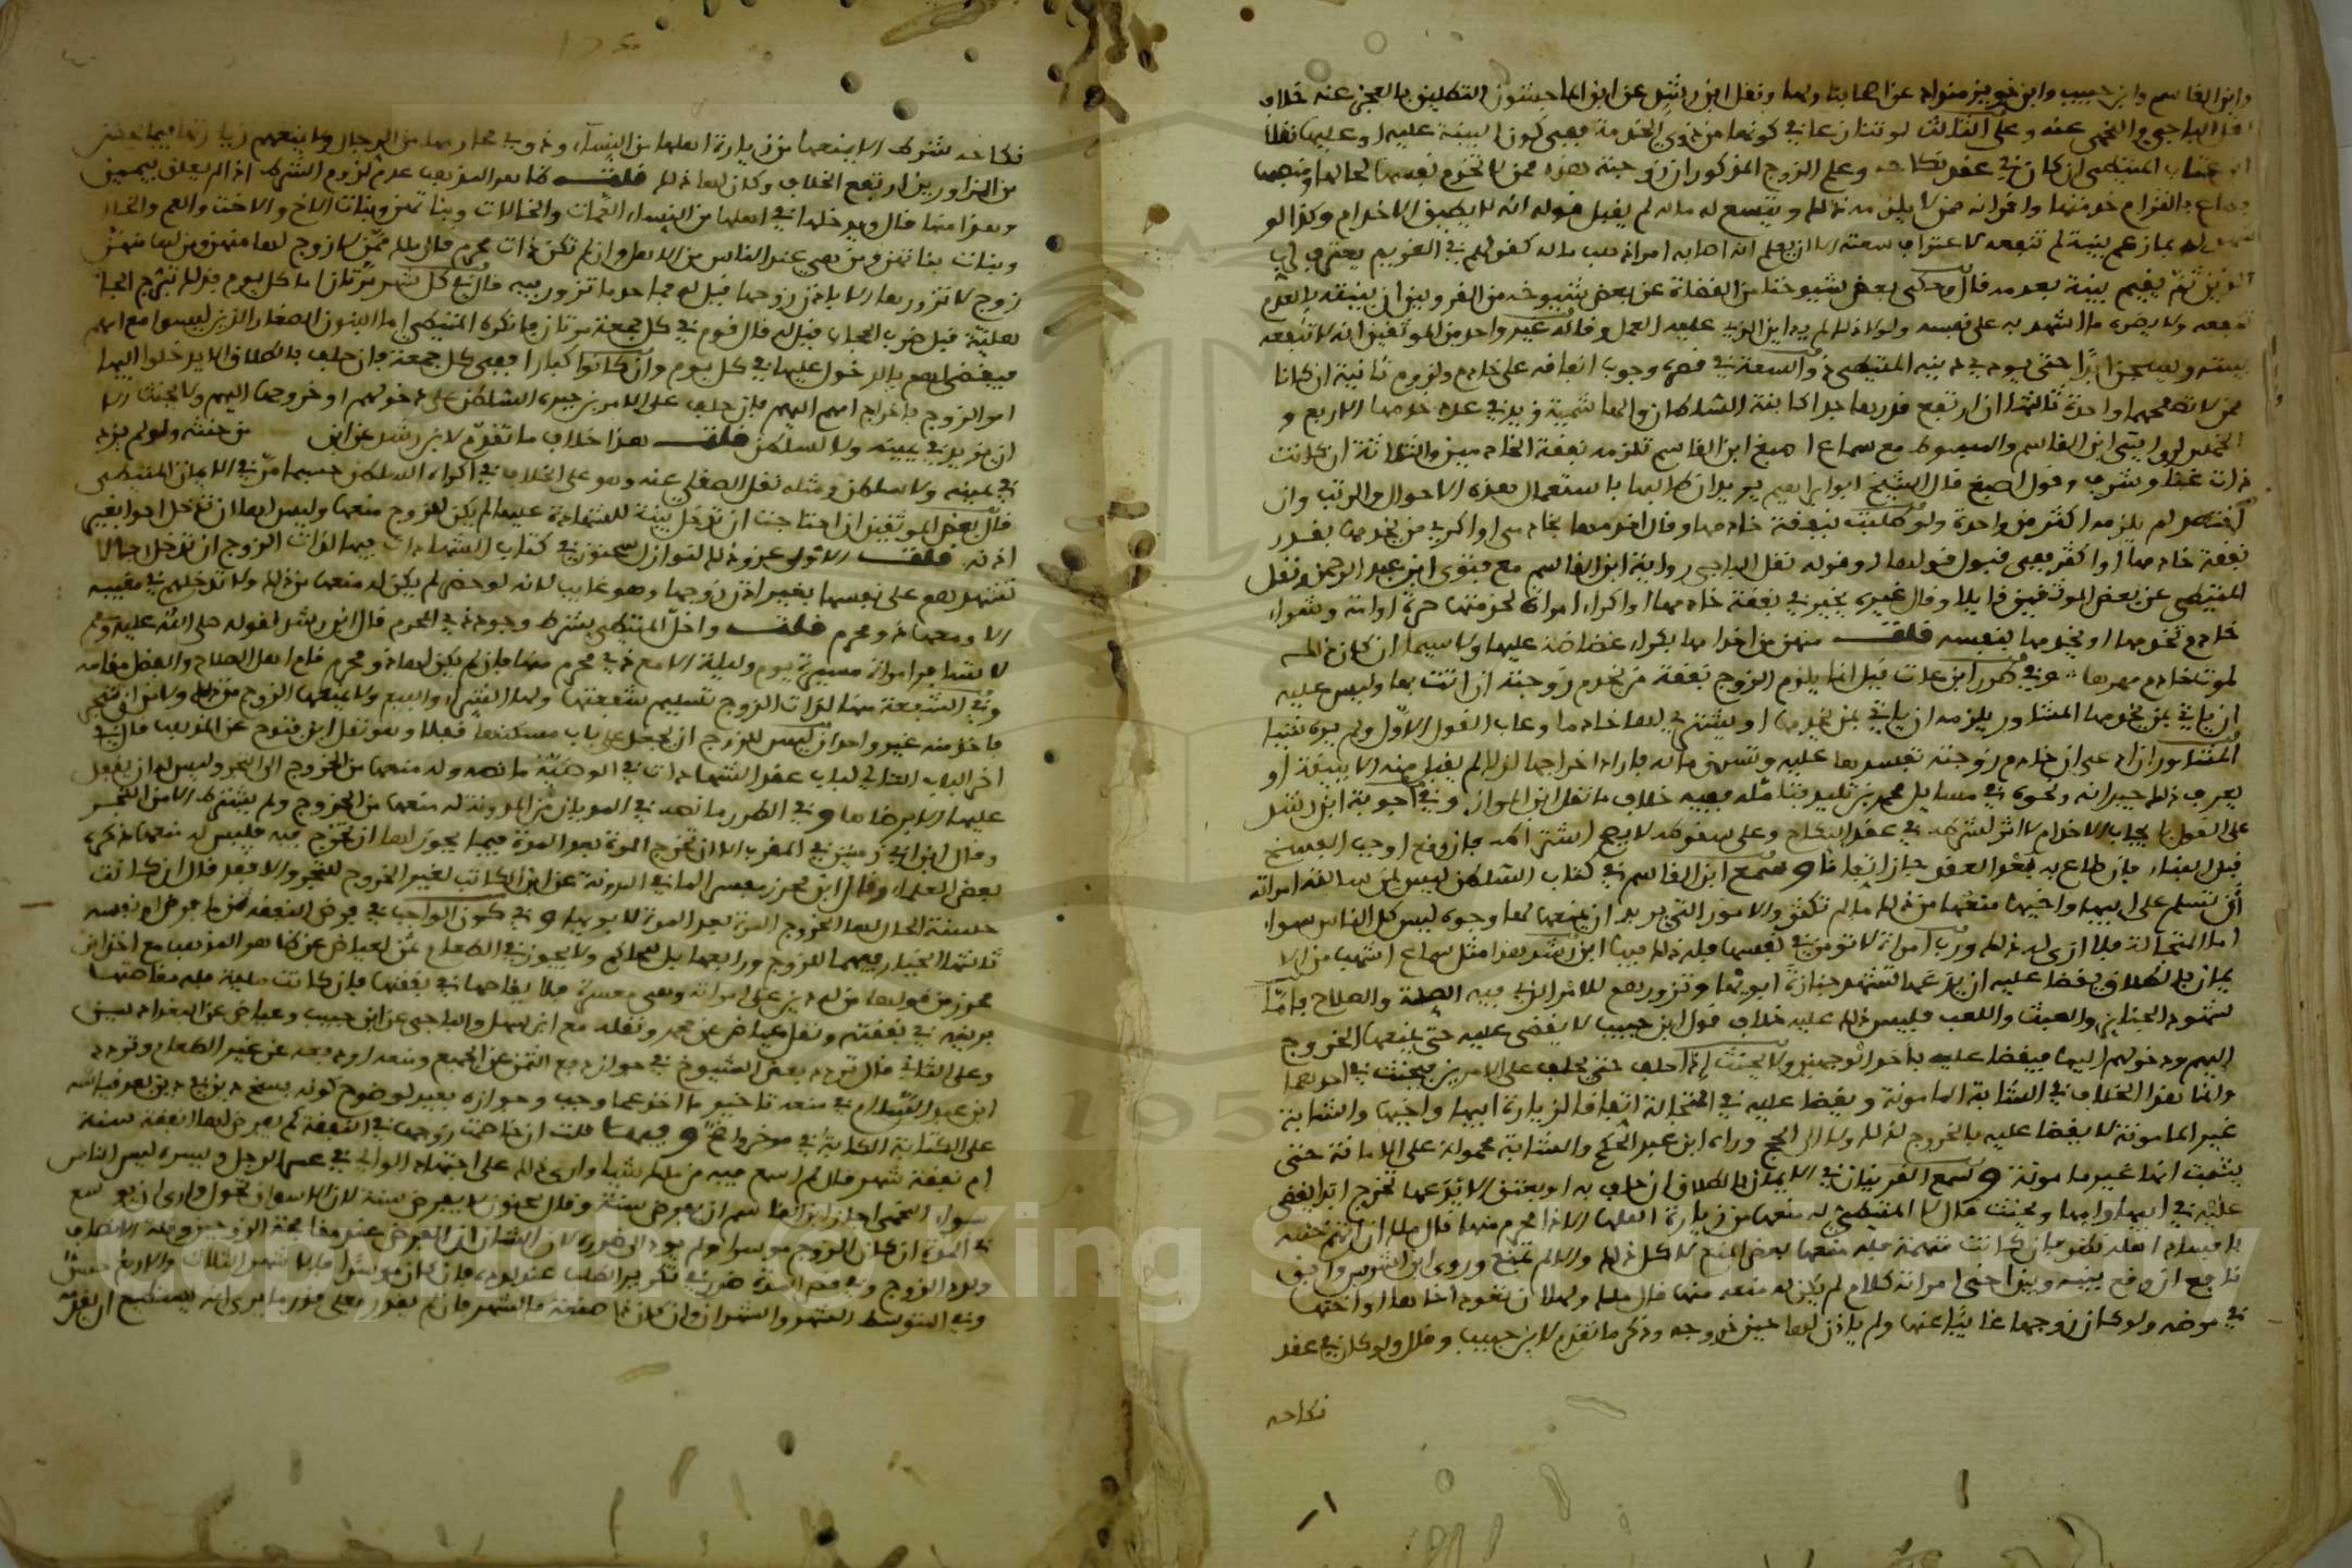 وابن القاسم وابن حبيب وابن خويز منداد عن اصحابنا ونقل ابن رشد عن ابن الماجشون التطليق بالعجز عنه خلاف
نقل الباجي واللخمي عنه وعلى الثالث لو تنازعا في كونها من ذوي الخدمة ففي كون البينة عليه او عليها نقلا
ان كان في عقد نكاحه وعلم الزوج المذكور ان زوجته هذه ممن لا تخدم نفسها لحالها ومنصبها
خدمتها واقر انه ممن لا يلزمه ذلك ويتسع له ماله لم يقبل قوله انه لا يطيق الاخدام وكذا لو
بما زعم بينة لم تنفعه لاعترافه سعته الا ان يعلم انه اصابه امر اذهب ماله كقولهم في الغريم يعترف
ثم يقيم بينة بعدمه قال وحكى بعض شيوخنا من القضاة عن بعض شيوخه من القرويين ان بينته بالعدم
تنفعه ولا يضره ما اشهد به على نفسه ولولا ذلك لم يداين الذي عليه العمل وقاله غير واحد من الموثقين انه لا تنفعه
بينته ويسجن ابدا حتى يودي دينه المتيطي والسعة في فهي وجوب انفاقه على خادم ولزوم ثانية ان كانا
ممن لا تصلحهما واحدة ثالثها ان ارتفع قدرها جدا كابنة السلطان والهاشمية زيد في عدد خدمها الاربع و
الخمس لرواية ابن القاسم والمبسوط مع سماع اصبغ ابن القاسم تلزمه نفقة الخادمين والثلاثة ان كانت
ذات غنا وشرف وقول اصبغ قال الشيخ ابو ابراهيم يريد ان طالبها باستعمال هذه الاحوال والرتب وان
لم يلزمه اكثر من واحدة ولو طلبت نفقة خادمها وقال اخدمها بخادمي او اكري من يخدمها بقدر
نفقة خادمها او اكثر ففي قبول قولها او قوله نقل الباجي رواية ابن القاسم مع فتوى ابن عبد الرحمن ونقل
المتيطي عن بعض الموثقين قايلا وقال غيره يخير في نفقة خادمها او اكراء امراة لخدمتها حرة او امة وشراء
خادم تخدمها او يخدمها بنفسه قلت منهن من اخدامها بكراء غضاضة عليها ولا سيما ان كان ذلك
لموت خادم مهرها وفي طرر ابن عات قيل انما يلزم الزوج نفقة من يخدم زوجته ان اتت بها وليس عليه
ان ياتي بمن يخدمها المشاور يلزمه ان ياتي بمن يخدمها او يشتري لها خادما وعاب القول الاول ولم يره شيئا
المشاور ان ادعى ان خادم زوجته تفسدها عليه وتسرق ماله فاراد اخراجها لذلك لم يقبل منه الا ببينة او
يعرف ذلك جيرانه ونحوه في مسايل محمد بن تليد فتامله ففيه خلاف ما نقل ابن المواز وفي اجوبة ابن رشد
على القول بايجاب الاخدام لا اثر لشرطه في عقد النكاح وعلى سقوطه لا يصح اشتراطه فان وقع اوجب الفسخ
قبل البناء فان طاع به بعد العقد جاز اتفاقا وسمع ابن القاسم في كتاب السلطان ليس لمن سالته امراته
ان تسلم على ابيها واخيها منعها من ذلك ما لم تكثر والامور التي يريد ان يمنعها لها وجوه ليس كل الناس سواء
اما المتجالة فلا ارى له ذلك ورب امراة لا تومن في نفسها فله ذلك فيها ابن رشد هذا مثل سماع اشهب من الا
يمان بالطلاق يقضا عليه ان يدعها تشهد جنازة ابويها وتزورهم للامر الذي فيه الصلة والصلاح فاما
شهود الجنايز والعبث واللعب فليس ذلك عليه خلاف قول ابن حبيب لا يقضى عليه حتى يمنعها الخروج
اليهم ودخولهم اليها فيقضا عليه باحد الوجهين ولا يحنث اذا حلف حتى يحلف على الامرين فيحنث في احدهما
وانما هذا الخلاف في الشابة المامونة ويقضا عليه في المتجالة اتفاقا لزيارة ابيها واخيها والشابة
غير المامونة لا يقضا عليه بالخروج لذلك ولا الى الحج وراءه ابن عبد الحكم والشابة محمولة على الامانة حتى
يثبت انها غير مامونة وسمع القرينان في الايمان بالطلاق ان حلف به او بعتق الا يدعها تخرج ابدا يقضى
عليه في ابيها وامها ويحنث قال لا المتيطي له منعها من زيارة اهلها الا ذا محرم منها قال ملك ان اتهم ختنه
بافساد اهله نظر فان كانت متهمة فله منعها بعض المنع لا كل ذلك والا لم تمنع وروى ابن اشرس وابن
نافع ان وقع بينه وبين اخي امراته كلام لم يكن له منعه منها قال ملك ولها ان تعود اخاها او اختها
في مرضه ولو كان زوجها غائبا عنها ولم ياذن لها حين خروجه وذكر ما تقدم لابن حبيب وقال ولو كان في عقد
نكاحه
نكاحه شرط الا يمنعها من زيارة اهلها من النساء وذوي محارمها من الرجال ولا يمنعهم زيارتها فيما يحسن
من التزاور بين ارتفع الخلاف وكان لها ذلك قلت ظاهر المذهب عدم لزوم الشرط اذا لم يعلق بيمين
وهذا منها قال ويدخل في اهلها من النساء العمات والخالات وبناتهن وبنات الاخ والاخت والعم والخال
وبنات بناتهن ومن هي عند الناس من الاهل وان لم تكن ذات محرم قال ملك ممن لا زوج لها منهن ومن لها منهن
زوج لا تزورها الا باذن زوجها قيل له فما حد ما تزور فيه قال في كل شهر مرتان اما كل يوم فذلك تبرج الجا
هلية قيل ضرب الحجاب قيل له قال قوم في كل جمعة مرتان فانكره المتيطي اما البنون الصغار الذين ليسوا مع امهم
فيقضى لهم بالدخول عليها في كل يوم وان كانوا كبارا ففي كل جمعة فان حلف بالطلاق الا يدخلوا اليها
امر الزوج باخراج امهم اليهم فان حلف على الامرين جبره السلطان على دخولهم او خروجها اليهم ولا يحنث الا
ان يزيد في يمينه ولا لسلطان قلت هذا خلاف ما تقدم لابن رشد عن ابن من حنثه ولو لم يزد
في يمينه ولا سلطان ومثله نقل الصقلي عنه وهو على الخلاف في اكراه السلطان حسبما مر في الايمان المتيطي
قال بعض الموثقين ان احتاجت ان تدخل بينة للشهادة عليها لم يكن للزوج منعها وليس لها ان تدخل احدا بغير
اذنه قلت الاول عزوه ذلك لنوازل سحنون في كتاب الشهادات فيها لذات الزوج ان تدخل رجالا
تشهدهم على نفسها بغير اذن زوجها وهو غايب لانه لو حضر لم يكن له منعها من ذلك ولا تدخلهم في مغيبه
الا ومعها ذو محرم قلت واخل المتيطي بشرط وجود ذي المحرم قال ابن رشد لقوله صلى الله عليه وسلم
لا تسافر امراة مسيرة يوم وليلة الا مع ذي محرم منها فان لم يكن لها ذو محرم قام اهل الصلاح والفضل مقامه
وفي الشفعة منها لذات الزوج تسليم شفعتها ولها الشراء والبيع ولا يمنعها الزوج من ذلك ولا من ان تتجر
فاخذ منه غير واحد ان ليس للزوج ان يجعل على باب مسكنها قفلا وهو نقل ابن فتوح عن المذهب قال في
اخر الباب الثاني لباب عقد الشهادات في الوصية ما نصه وله منعها من الخروج الى التجر وليس له ان يقفل
عليها الا برضاها وفي الطرر ما نصه في
وقال ابن ابي زمنين في المغرب الا ان تخرج المرة بعد المرة فيما يجوز لها ان تخرج فيه فليس له منعها ذكره
بعض العلماء وقال ابن محرز يفسر لما في المدونة عن ابن الكاتب لغير الخروج للتجر والا فقد قال ان كانت
حسنة الحال لها الخروج المرة بعد المرة لابويها وفي كون الواجب في فرض النفقة ثمن ما فرض او نفسه
ثالثها الخيار فيهما للزوج ورابعها بل للحاكم ولا يجوز في الطعام ثمن لعياض عن ظاهر المذهب مع اخذ ابن
محرز من قولها من له دين على امراته وهي معسرة فلا يقاصها في نفقتها فان كانت ملية فله مقاصتها
بدينه في نفقتها ونقل عياض عن محمد ونقله مع ابن سهل والباجي عن ابن حبيب وعياض عن البغداديين
وعلى الثاني قال تردد بعض الشيوخ في جواز دفع الثمن عن الجميع ومنعه او دفعه عن غير الطعام وتردد
ابن عبد السلام في منعه تاخير ما اخذ عما وجب وجوازه بعيد لوضوح كونه فسخ دين في دين بعد قياسه
على الكتابة الكتابة في موخر واضح وفيها قلت ان خاصمت زوجها في النفقة كم يفرض لها انفقة سنة
ام نفقة شهر قال لم اسمع فيه من ملك شيئا وارى ذلك على اجتهاد الوالي في عسر الرجل ويسره ليس الناس
سواء اللخمي اجاز ابن القاسم ان يفرض سنة وقال سحنون لا يفرض سنة لان الاسواق تحول وارى ان يوسع
في المدة ان كان الزوج موسرا ولم يود الى ضرره لان الشان ان الفرض عند مقابحة الزوجين وقلة الانصاف
ولدد الزوج وفي قصر المدة ضرر في تكرير الطلب عند لدده فان كان موسرا فالاشهر الثلاث والاربع حسن
وفي المتوسط الشهر والشهران وان كان ذا صنعة فالشهر فان لم يقدر فعلى قدر ما يرى انه يستطيع ان يقدمه